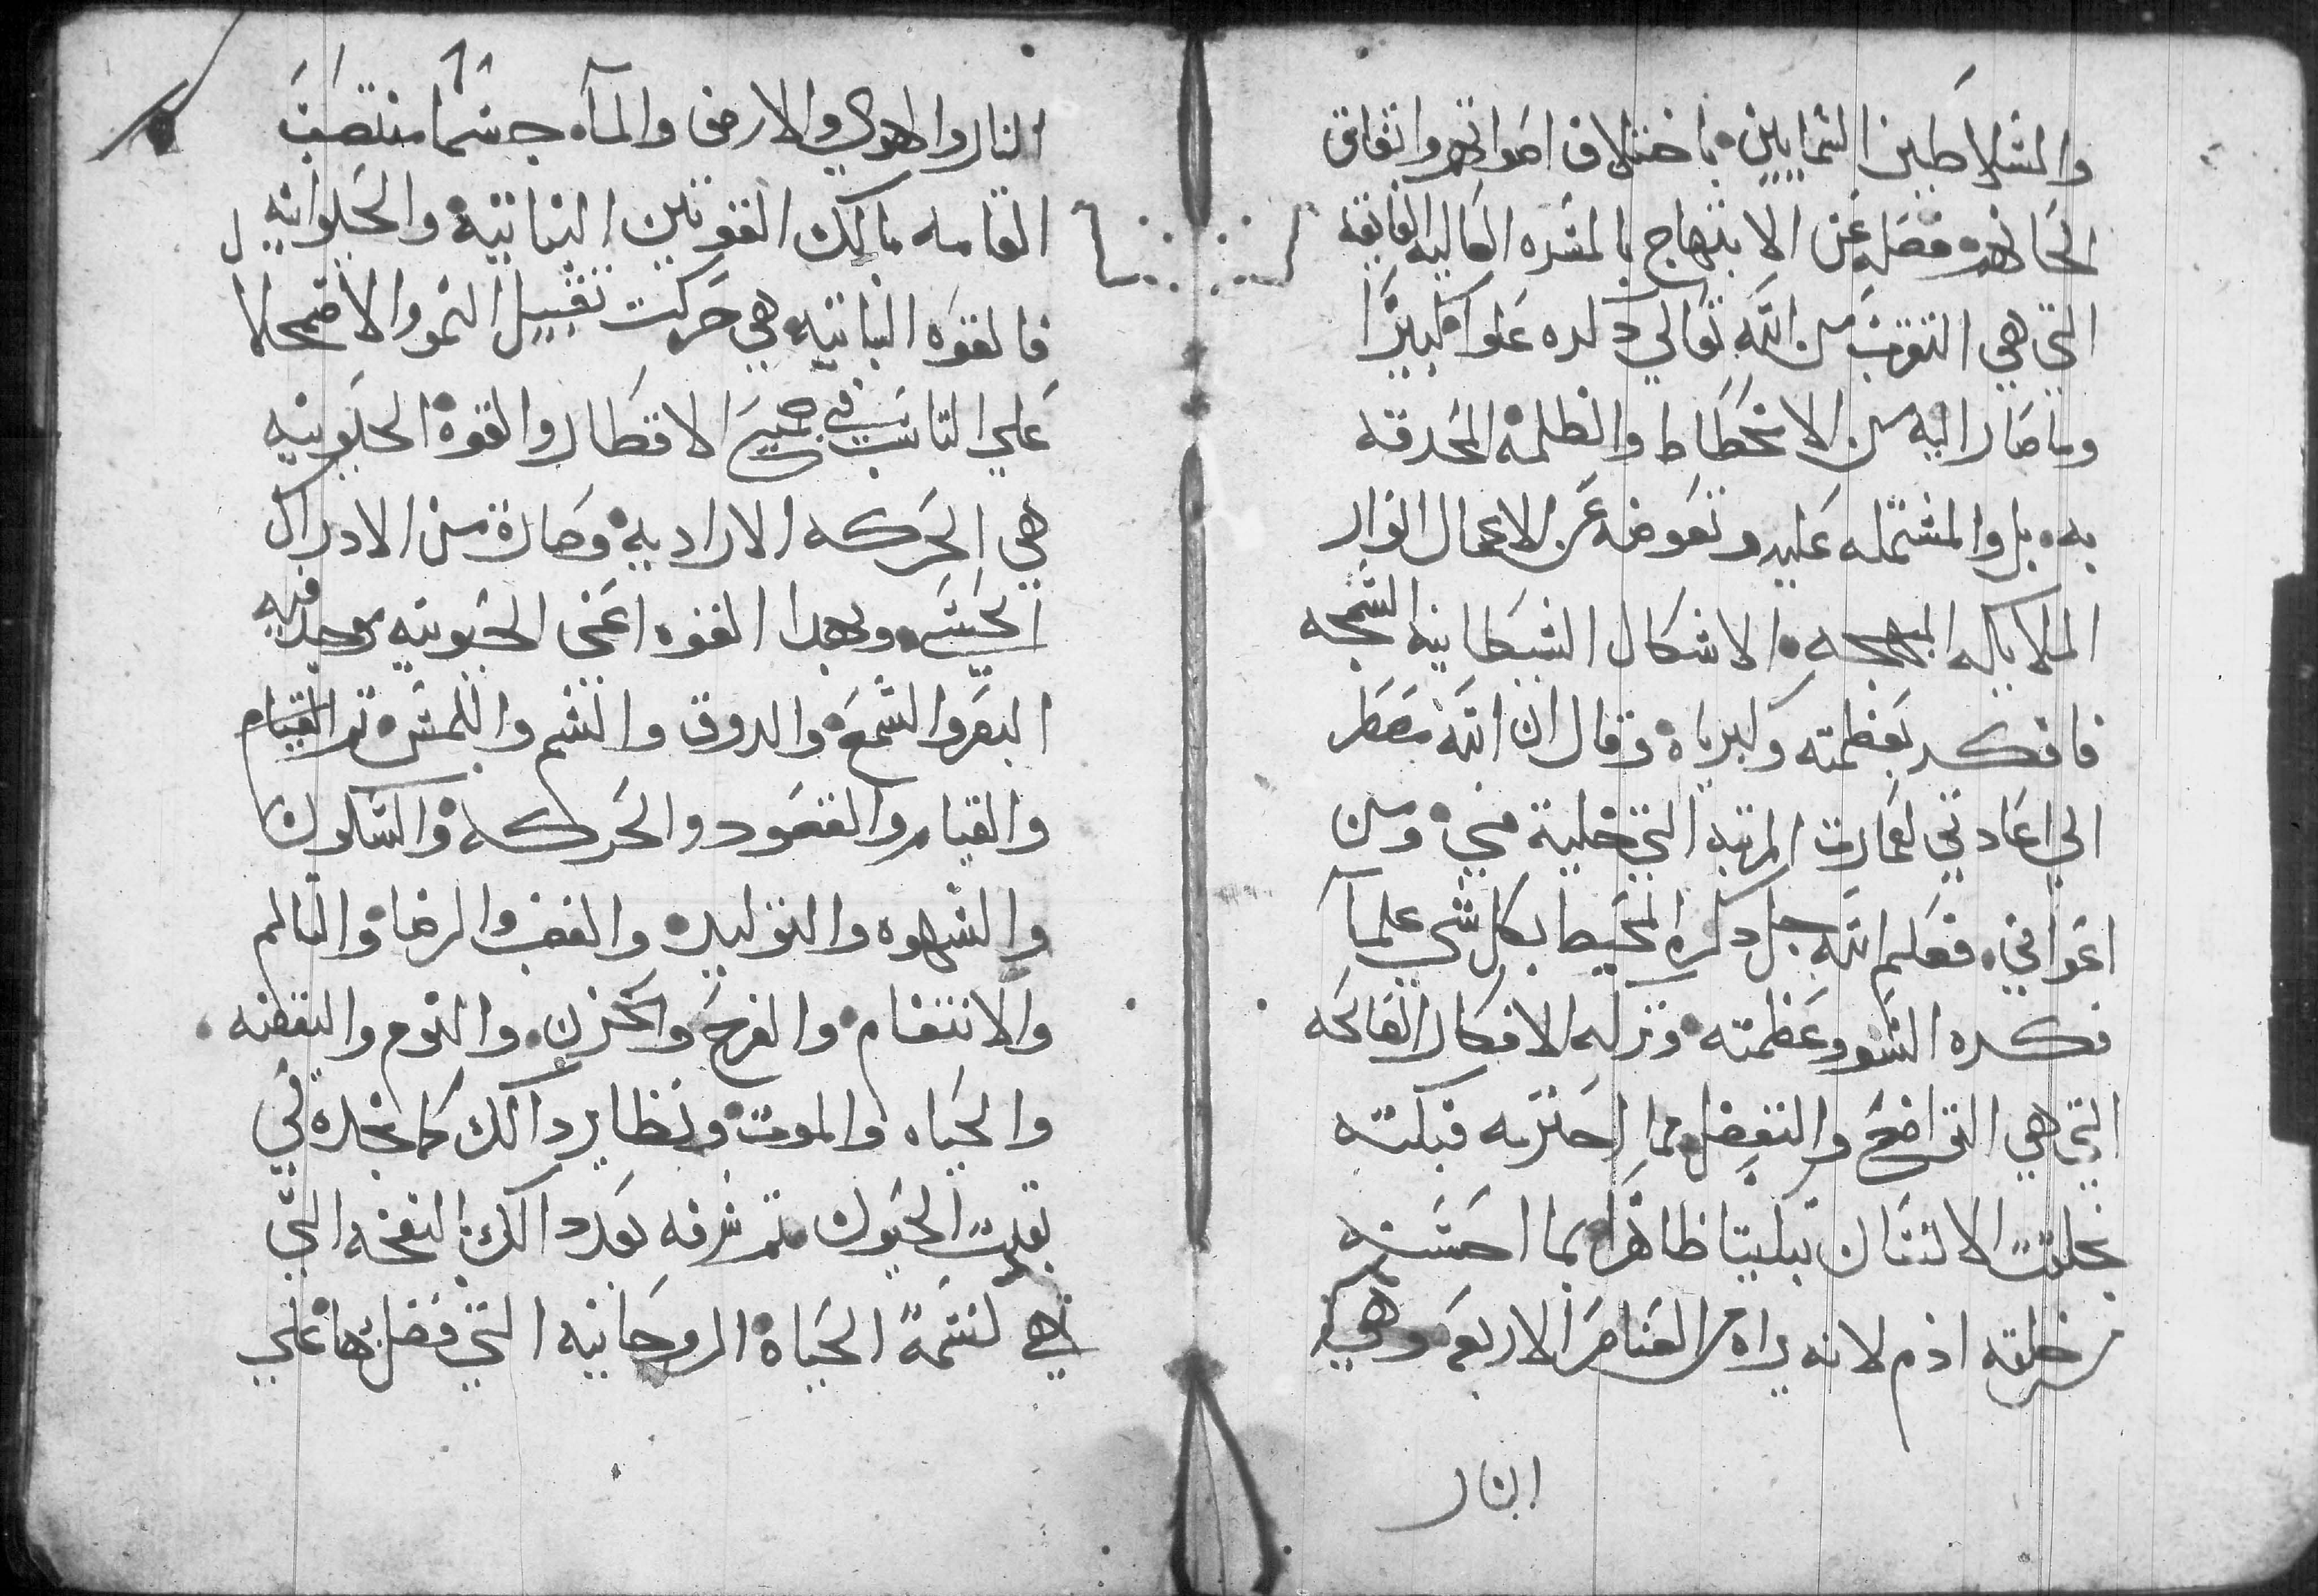 والسلاطين السمايين باختلاف اصواتهم واتفاق
الحانهم فضل عن الابتهاج بالمسره العاليه الفايقه
التي هي التقرب من الله تعالي دكره علوا كبيرًا
وما صار اليه من الانحطاط والظلمه المحدقه
به بل والمشتمله عليه وتعوضه عن الاعمال النوار
الملاييكه البهجه الاشكال الشيطانيه السمجه
فافكر بعظمته وكبرياه وقال ان الله مضطر
الي اعادتي لعمارت المرتبه التي خلية مني ومن
اعواني فعلم الله جل دكره المحيط بكل شي علمآ
فكره السو وعظمته وتركه الافكار الصالحه
التي هي التواضع والتفضل مما اجترمه فبكته
بخلقت الانسان تبكيتا ظاهرًا بما احسنه
من خلقه ادم لانه براه من العناصر الاربعه وهي
النار
١١
النار والهوي والارض والمآء جسمًا منتصب
القامه مالك القوتين النباتيه والحيوانيه
فالقوه النباتيه هي حركت تقبيل النمو والاضمحلال
علي التناسب في جميع الاقطار والقوه الحيونيه
هي الحركه الاراديه وصادرة من الادراك
الحسي وبهدا القوه اعني الحيونيه يوجد فيه
البصر والسمع والدوق والشم واللمس ثم القيام
والقيام والقعود والحركه والسكون
والشهوه والتوليد والغضب والرضاء والتالم
والانتقام والفرح والحزن والنوم واليقضه
والحياه والموت ونظاير دالك كما نجده في
بقيت الحيوان ثم شرفه بعد دالك بالنفخه التي
هي نسمة الحياة الروحانيه التي فضل بها علي